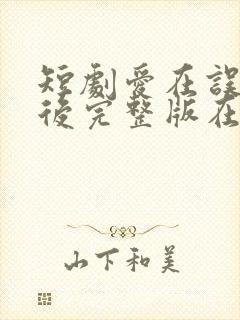 短劇愛在誤
後完整版在
山下和美